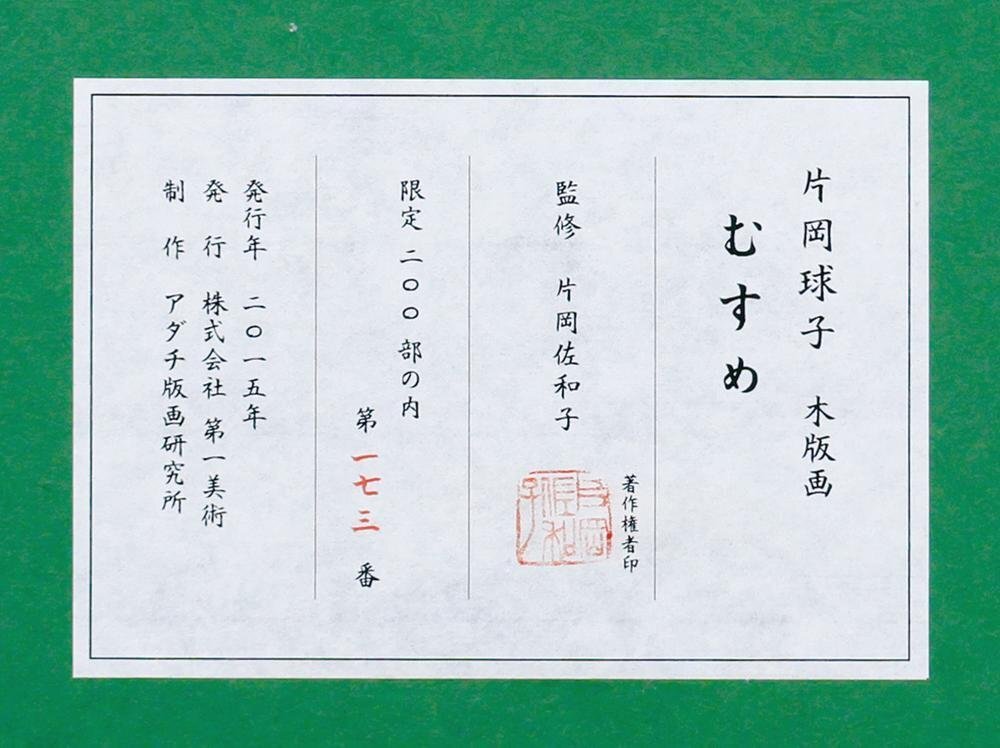 片岡球子 木版画
むすめ
著作権者印
監修 片岡佐和子
片岡佐和子
限定 二〇〇 部の内
第 一七三 番
発行年 二〇一五年
発行 株式会社 第一美術
制作 アダチ版画研究所